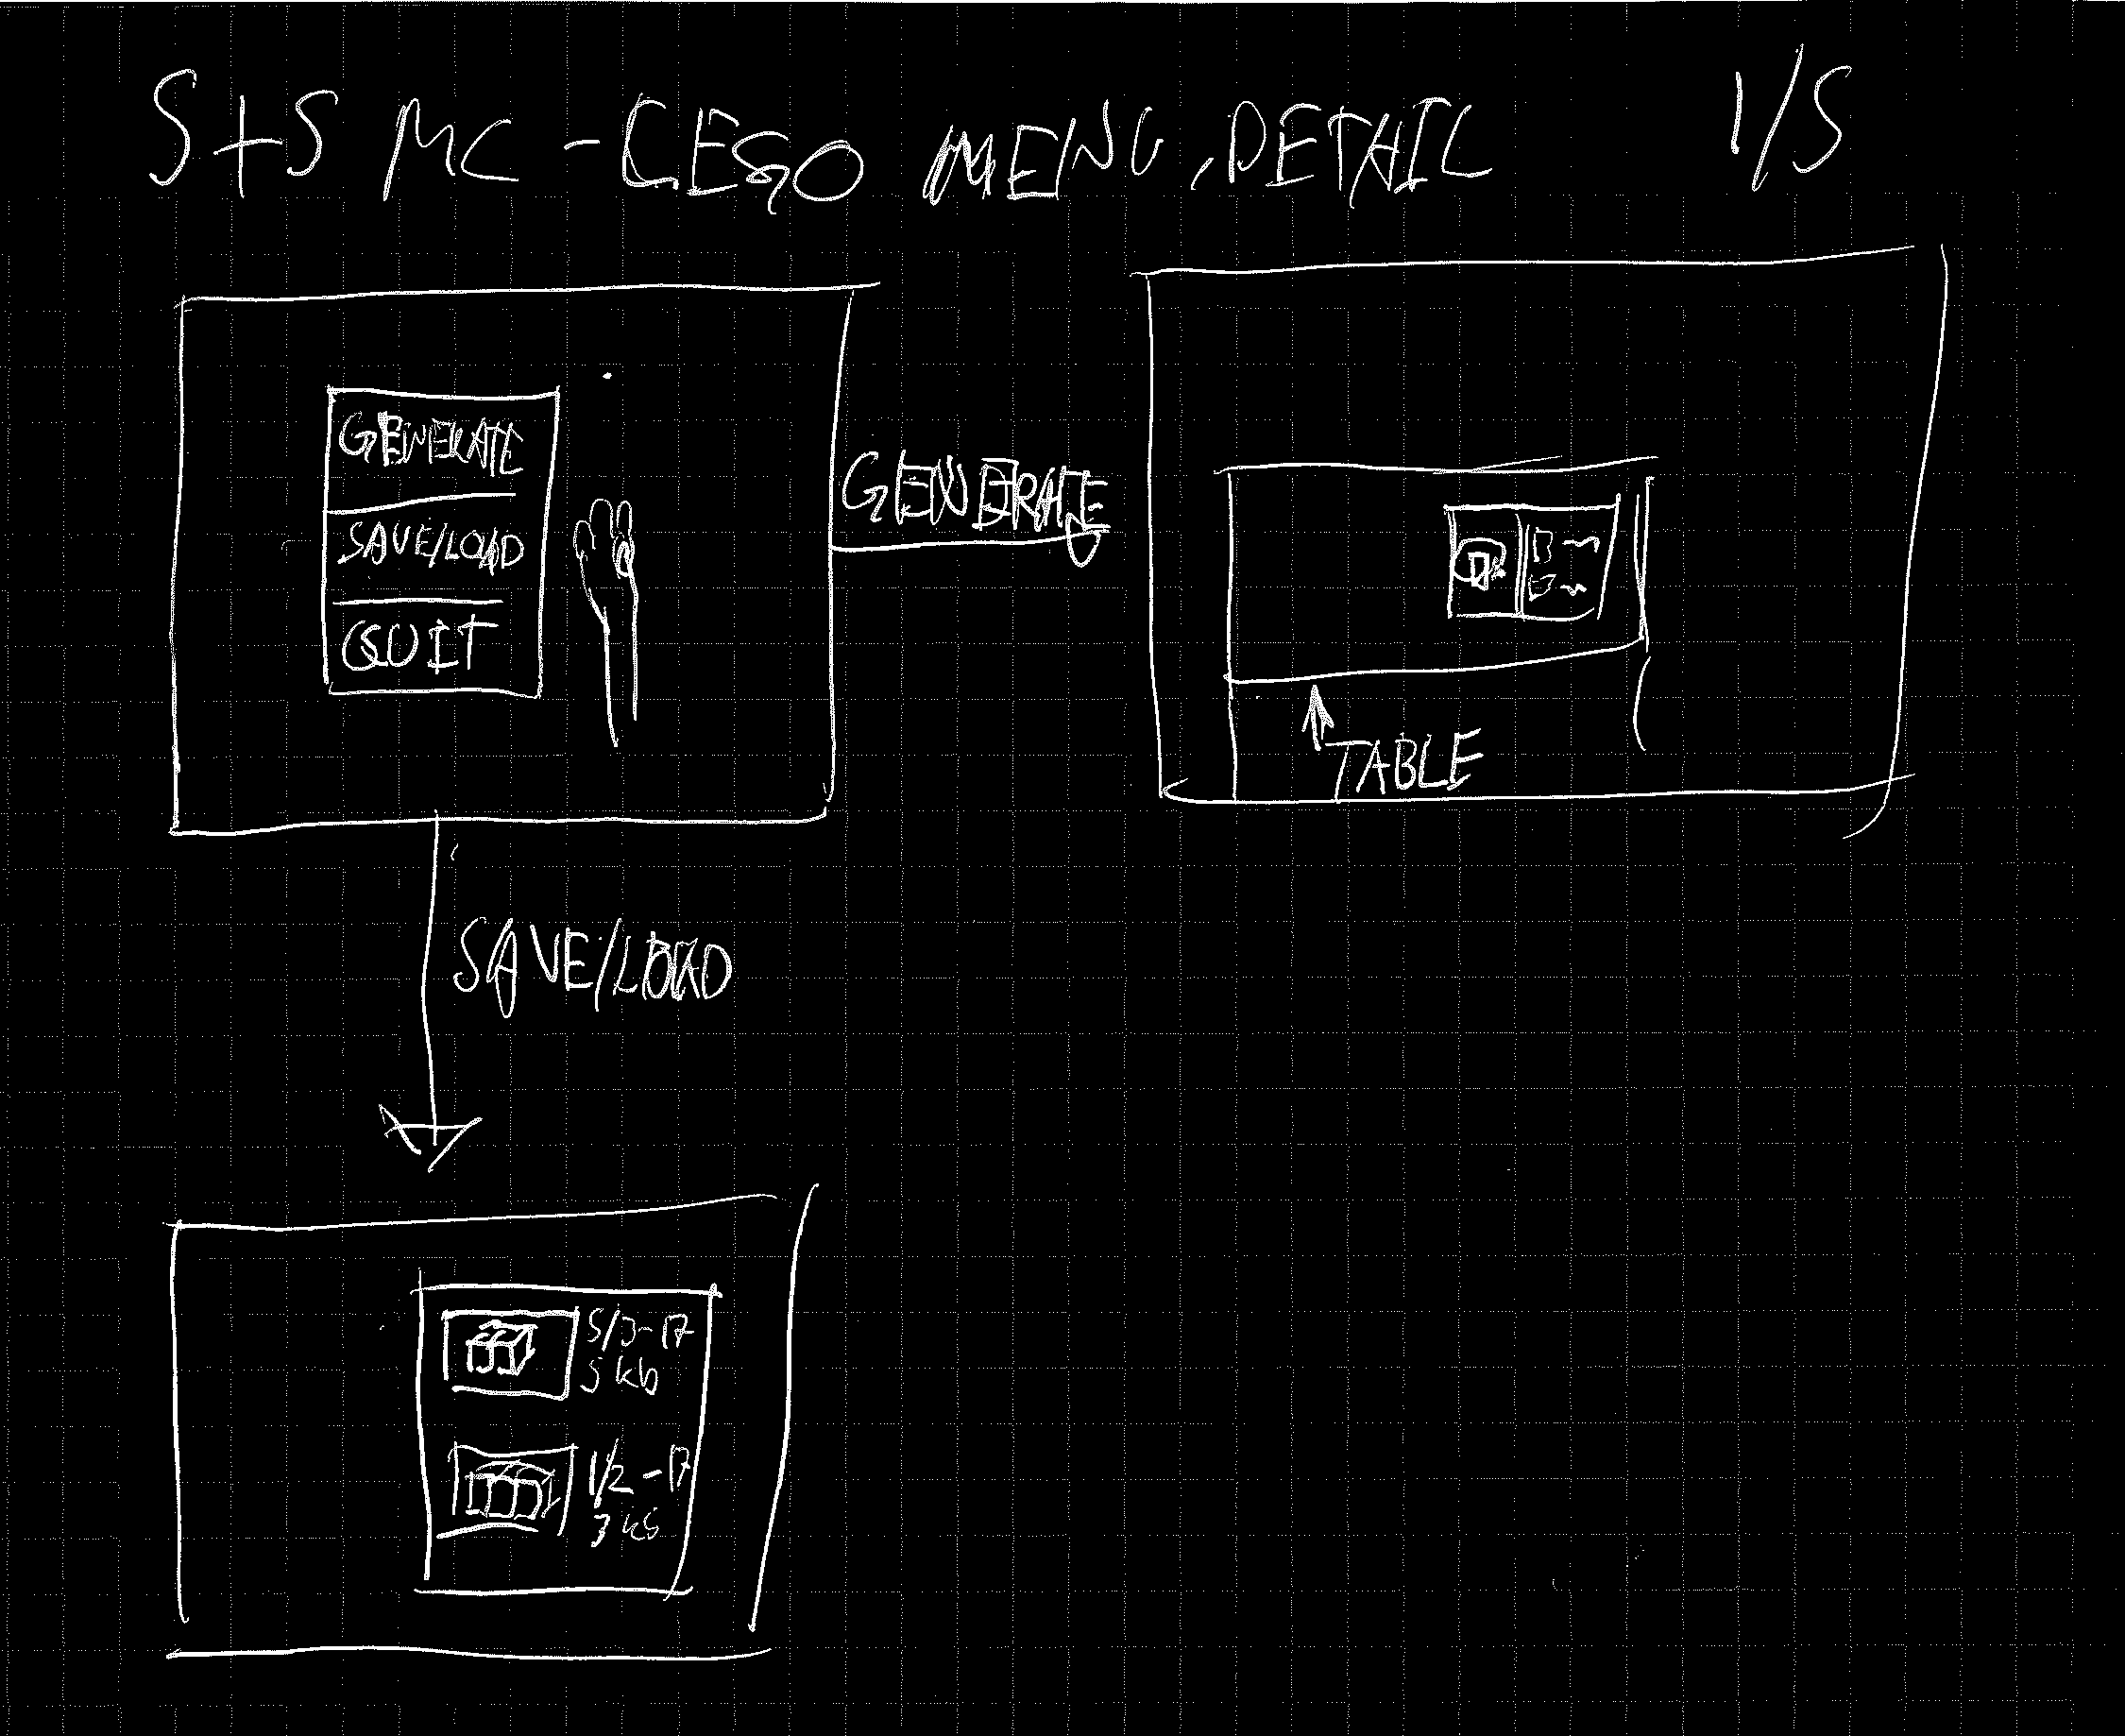 S+S MC - LEGO MENU, DETAIL 1/5
GENERATE
SAVE/LOAD
QUIT
GENERATE
TABLE
SAVE/LOAD
5/3-17
5 kb
1/2-17
3 kb